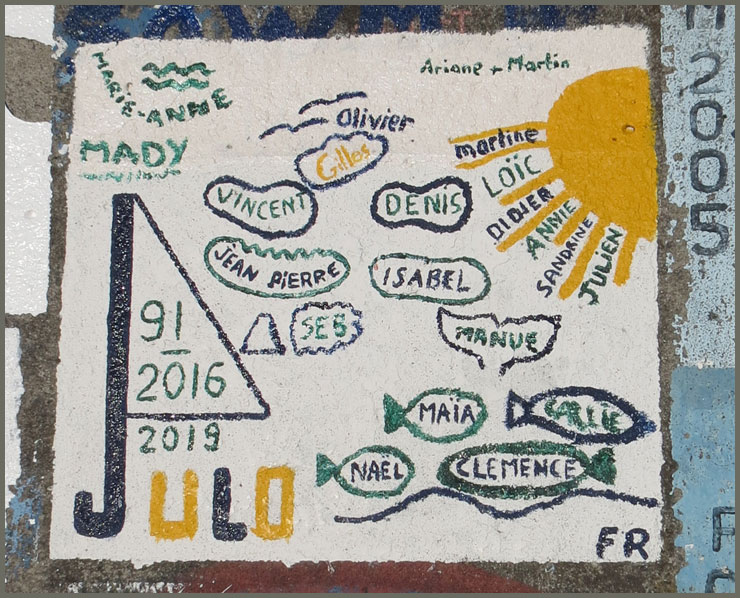 MARIE-ANNE
Ariane + Martin
MADY
Olivier
Gilles
martine
LOÏC
DIDJER
ANNIE
SANDRINE
JULIEN
VINCENT
DENIS
JEAN PIERRE
ISABEL
SEB
MANUE
91
2016
2019
MAÏA
NAËL
CLEMENCE
JULO
FR
2005